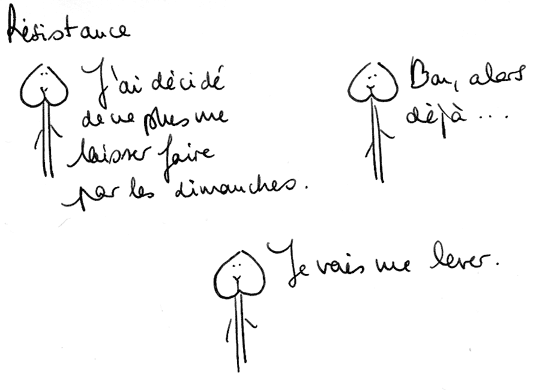 Résistance
J'ai décidé
de ne plus me
laisser faire
par les dimanches.
Bon, alors
déjà...
Je vais me lever.